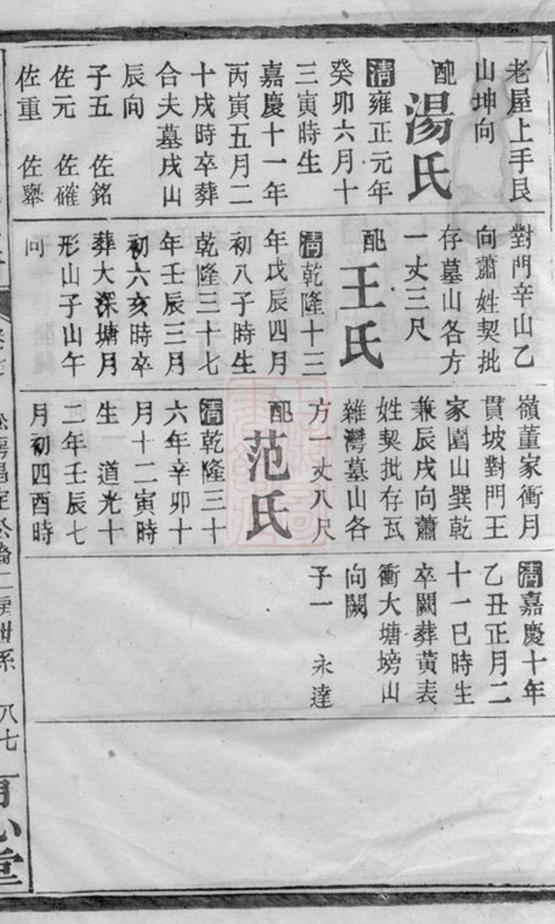 老屋上手艮
山坤向
配
湯氏
清雍正元年
癸卯六月十
三寅時生
嘉慶十一年
丙寅五月二
十戌時卒葬
合夫墓戌山
辰向
子五 佐銘
佐元 佐確
佐重 佐舉
對門辛山乙
向蕭姓契批
存墓山各方
一丈三尺
配
王氏
清乾隆十三
年戊辰四月
初八子時生
乾隆三十七
年壬辰三月
初六亥時卒
葬大深塘月
形山子山午
向
嶺董家衝月
貫坡對門王
家園山巽乾
兼辰戌向蕭
姓契批存瓦
雜灣墓山各
方一丈八尺
配
范氏
清乾隆三十
六年辛卯十
月十二寅時
生 道光十
二年壬辰七
月初四酉時
清嘉慶十年
乙丑正月二
十一巳時生
卒闕葬黃表
衝大塘塝山
向闕
子一 永達
八七